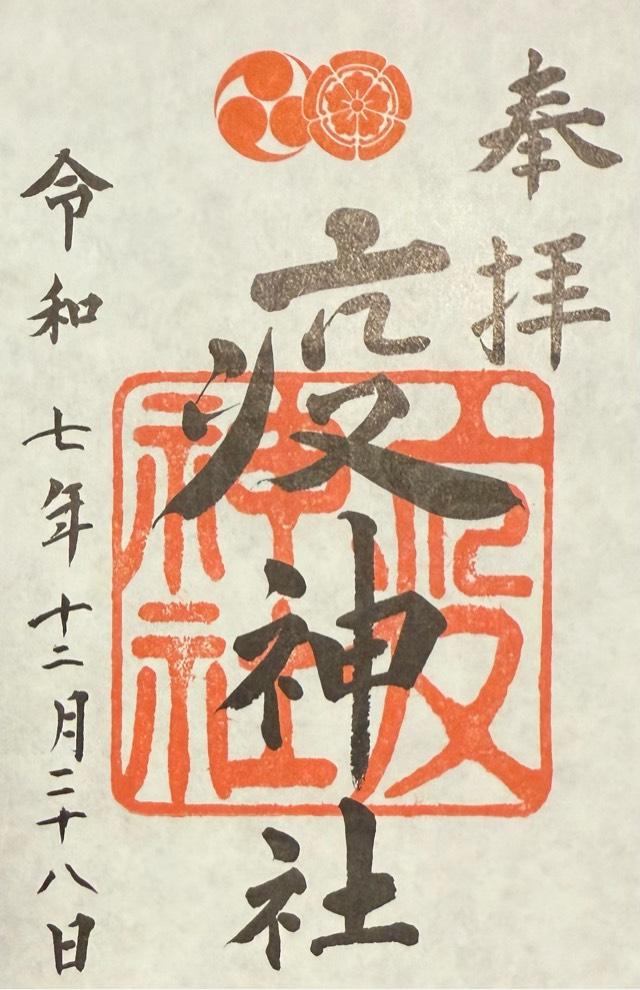 奉拝
疫神社
疫神社
令和七年十二月二十八日